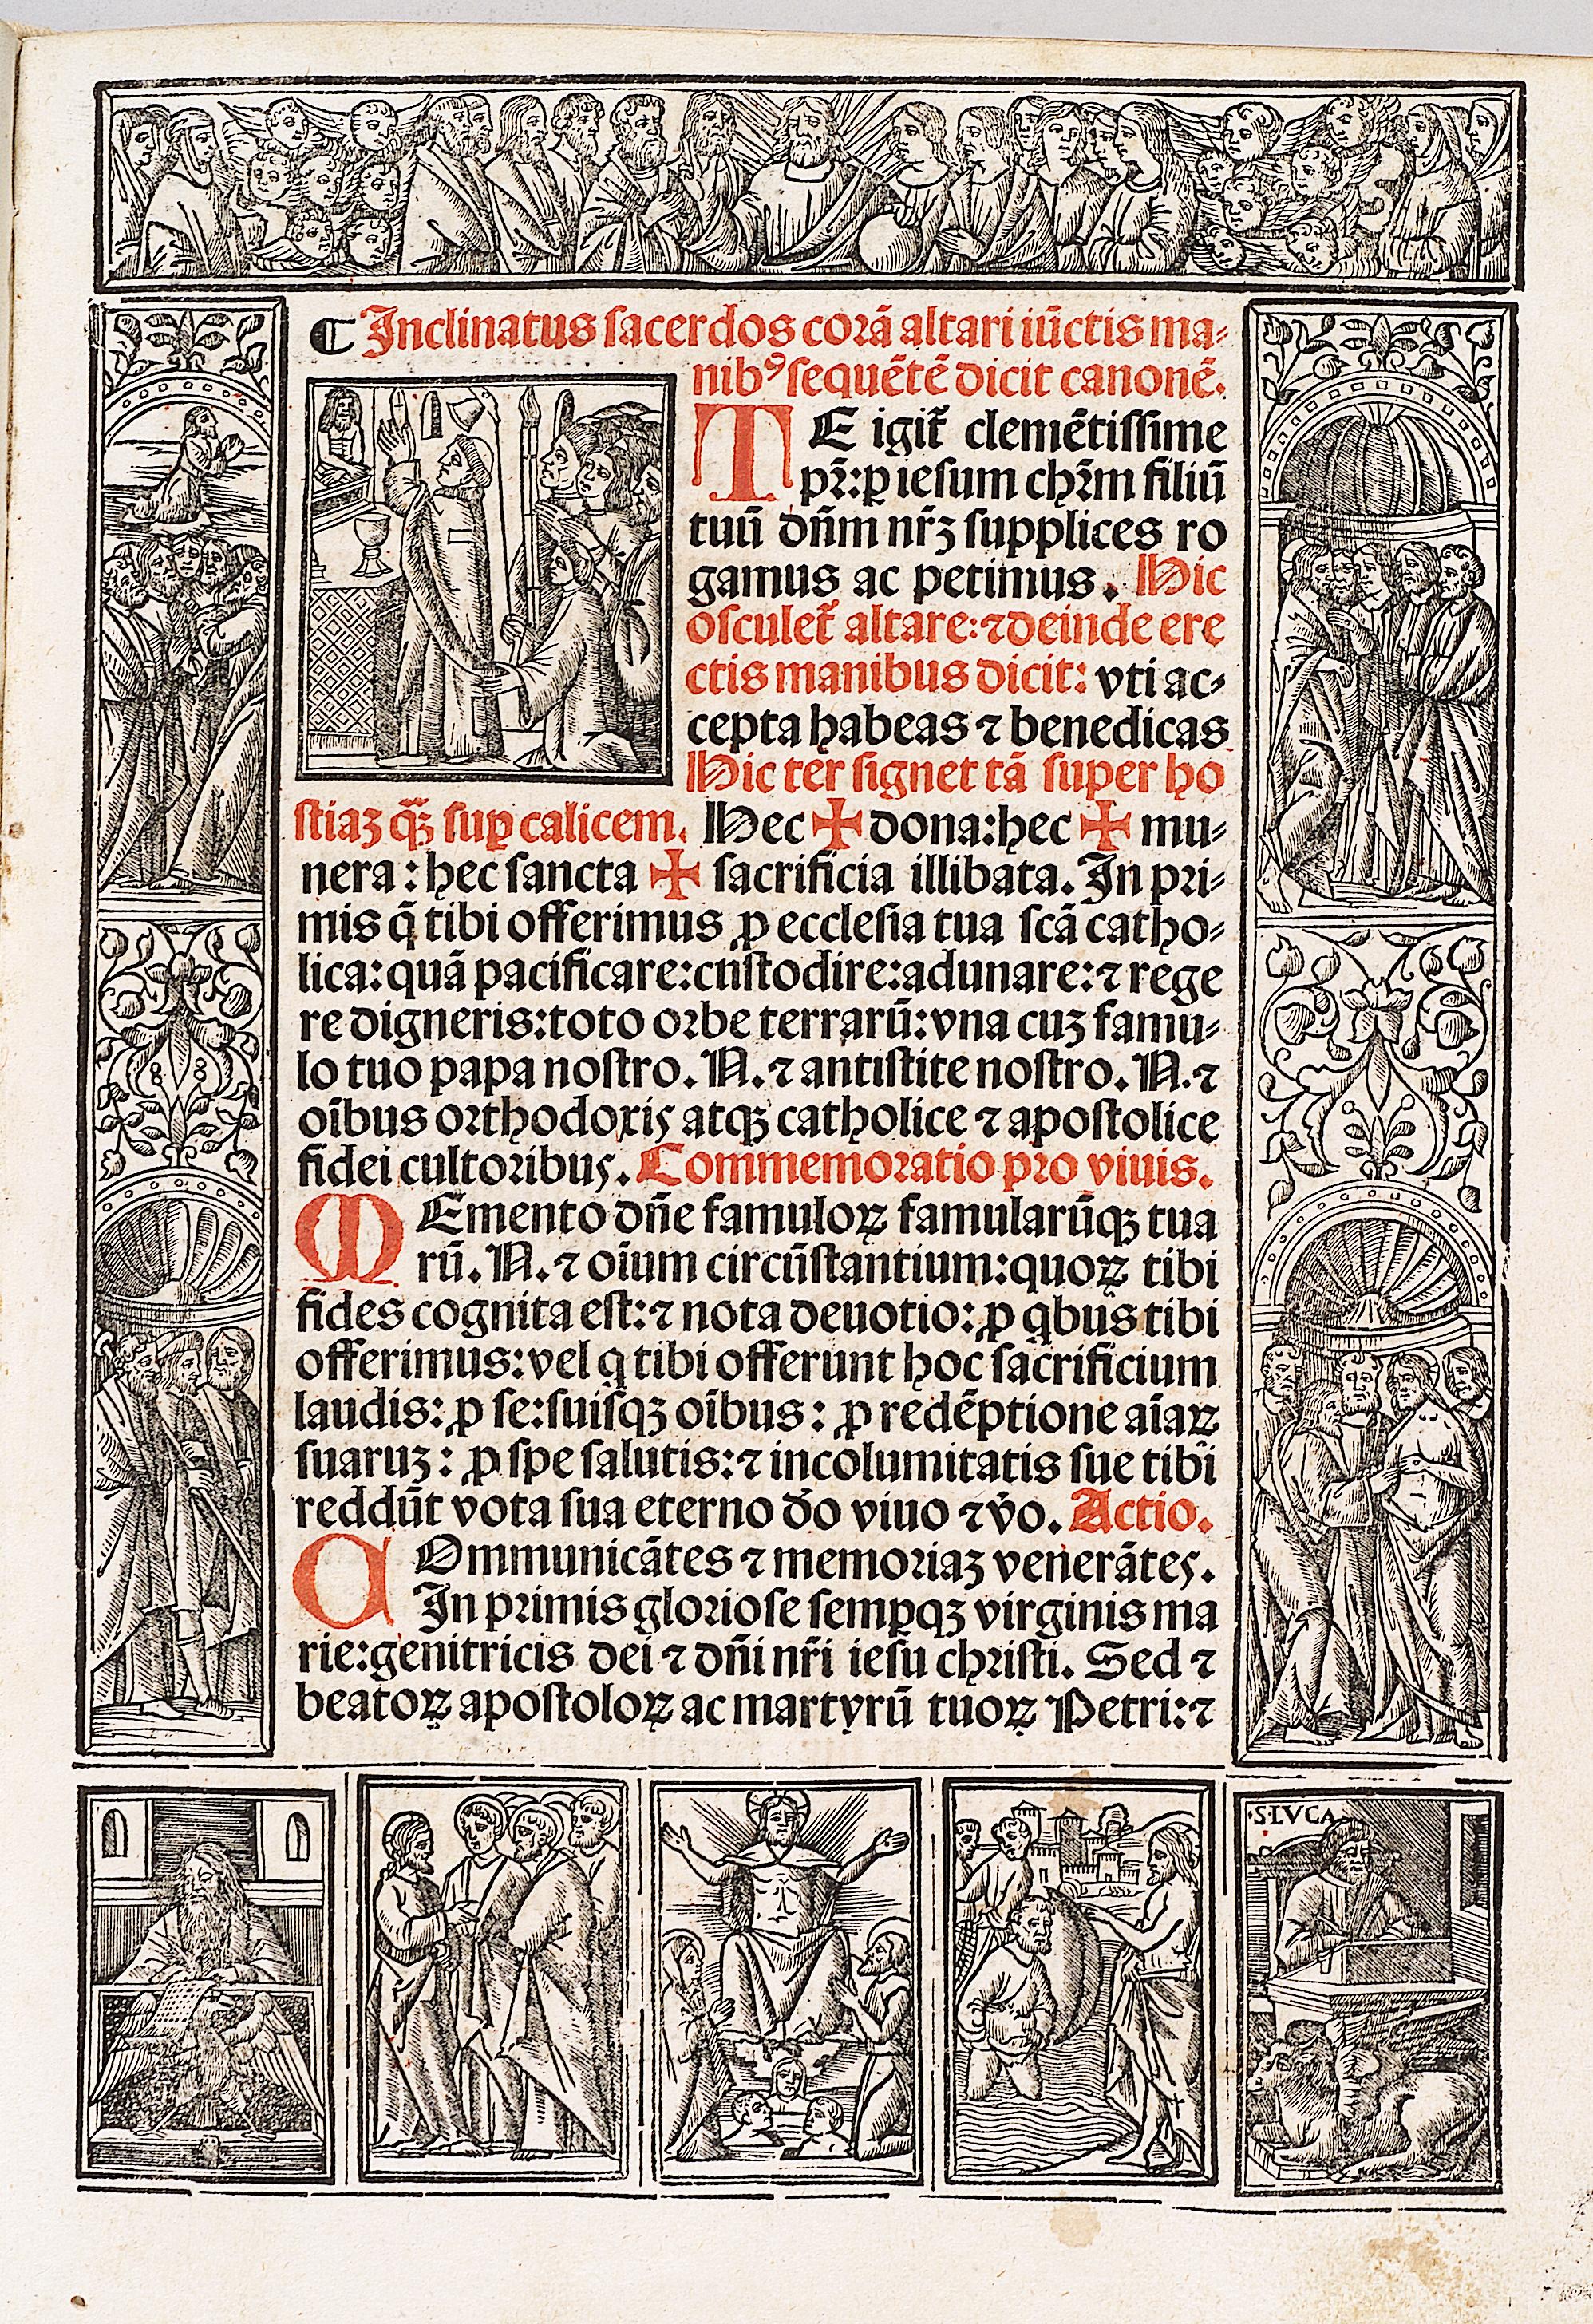 ¶ Inclinatus sacerdos corā altari iūctis ma-
nibꝰ sequētē dicit canonē.
TE igit̃ clemētissime
pr̃: ꝑ iesum chr̄m filiū
tuū dn̄m nr̄ꝫ supplices ro
gamus ac petimus. Hic
osculet̃ altare: ⁊ deinde ere
ctis manibus dicit: vti ac-
cepta habeas ⁊ benedicas
Hic ter signet tā super ho
stiaꝫ q̃ꝫ suꝑ calicem. Hec ✠ dona: hec ✠ mu-
nera: hec sancta ✠ sacrificia illibata. In pri-
mis q̄ tibi offerimus ꝓ ecclesia tua scā catho-
lica: quā pacificare: cnstodire: adunare: ⁊ rege
re digneris: toto orbe terrarū: vna cuꝫ famu-
lo tuo papa nostro. N. ⁊ antistite nostro. N. ⁊
oībus orthodoxis atqꝫ catholice ⁊ apostolice
fidei cultoribus. Commemoratio pro viuis.
MEmento dn̄e famuloꝝ famularūqꝫ tua
rū. N. ⁊ oīum circūstantium: quoꝝ tibi
fides cognita est: ⁊ nota deuotio: ꝓ qbus tibi
offerimus: vel q tibi offerunt hoc sacrificium
laudis: ꝓ se: suisqꝫ oībus: ꝓ redēptione aīaꝝ
suaruꝫ: ꝓ spe salutis: ⁊ incolumitatis sue tibi
reddūt vota sua eterno do viuo ⁊ vo. Actio.
COmmunicātes ⁊ memoriaꝫ venerātes.
In primis gloriose semꝑqꝫ virginis ma
rie: genitricis dei ⁊ dn̄i nr̄i iesu christi. Sed ⁊
beatoꝝ apostoloꝝ ac martyrū tuoꝝ Petri: ⁊
·S·LVCA